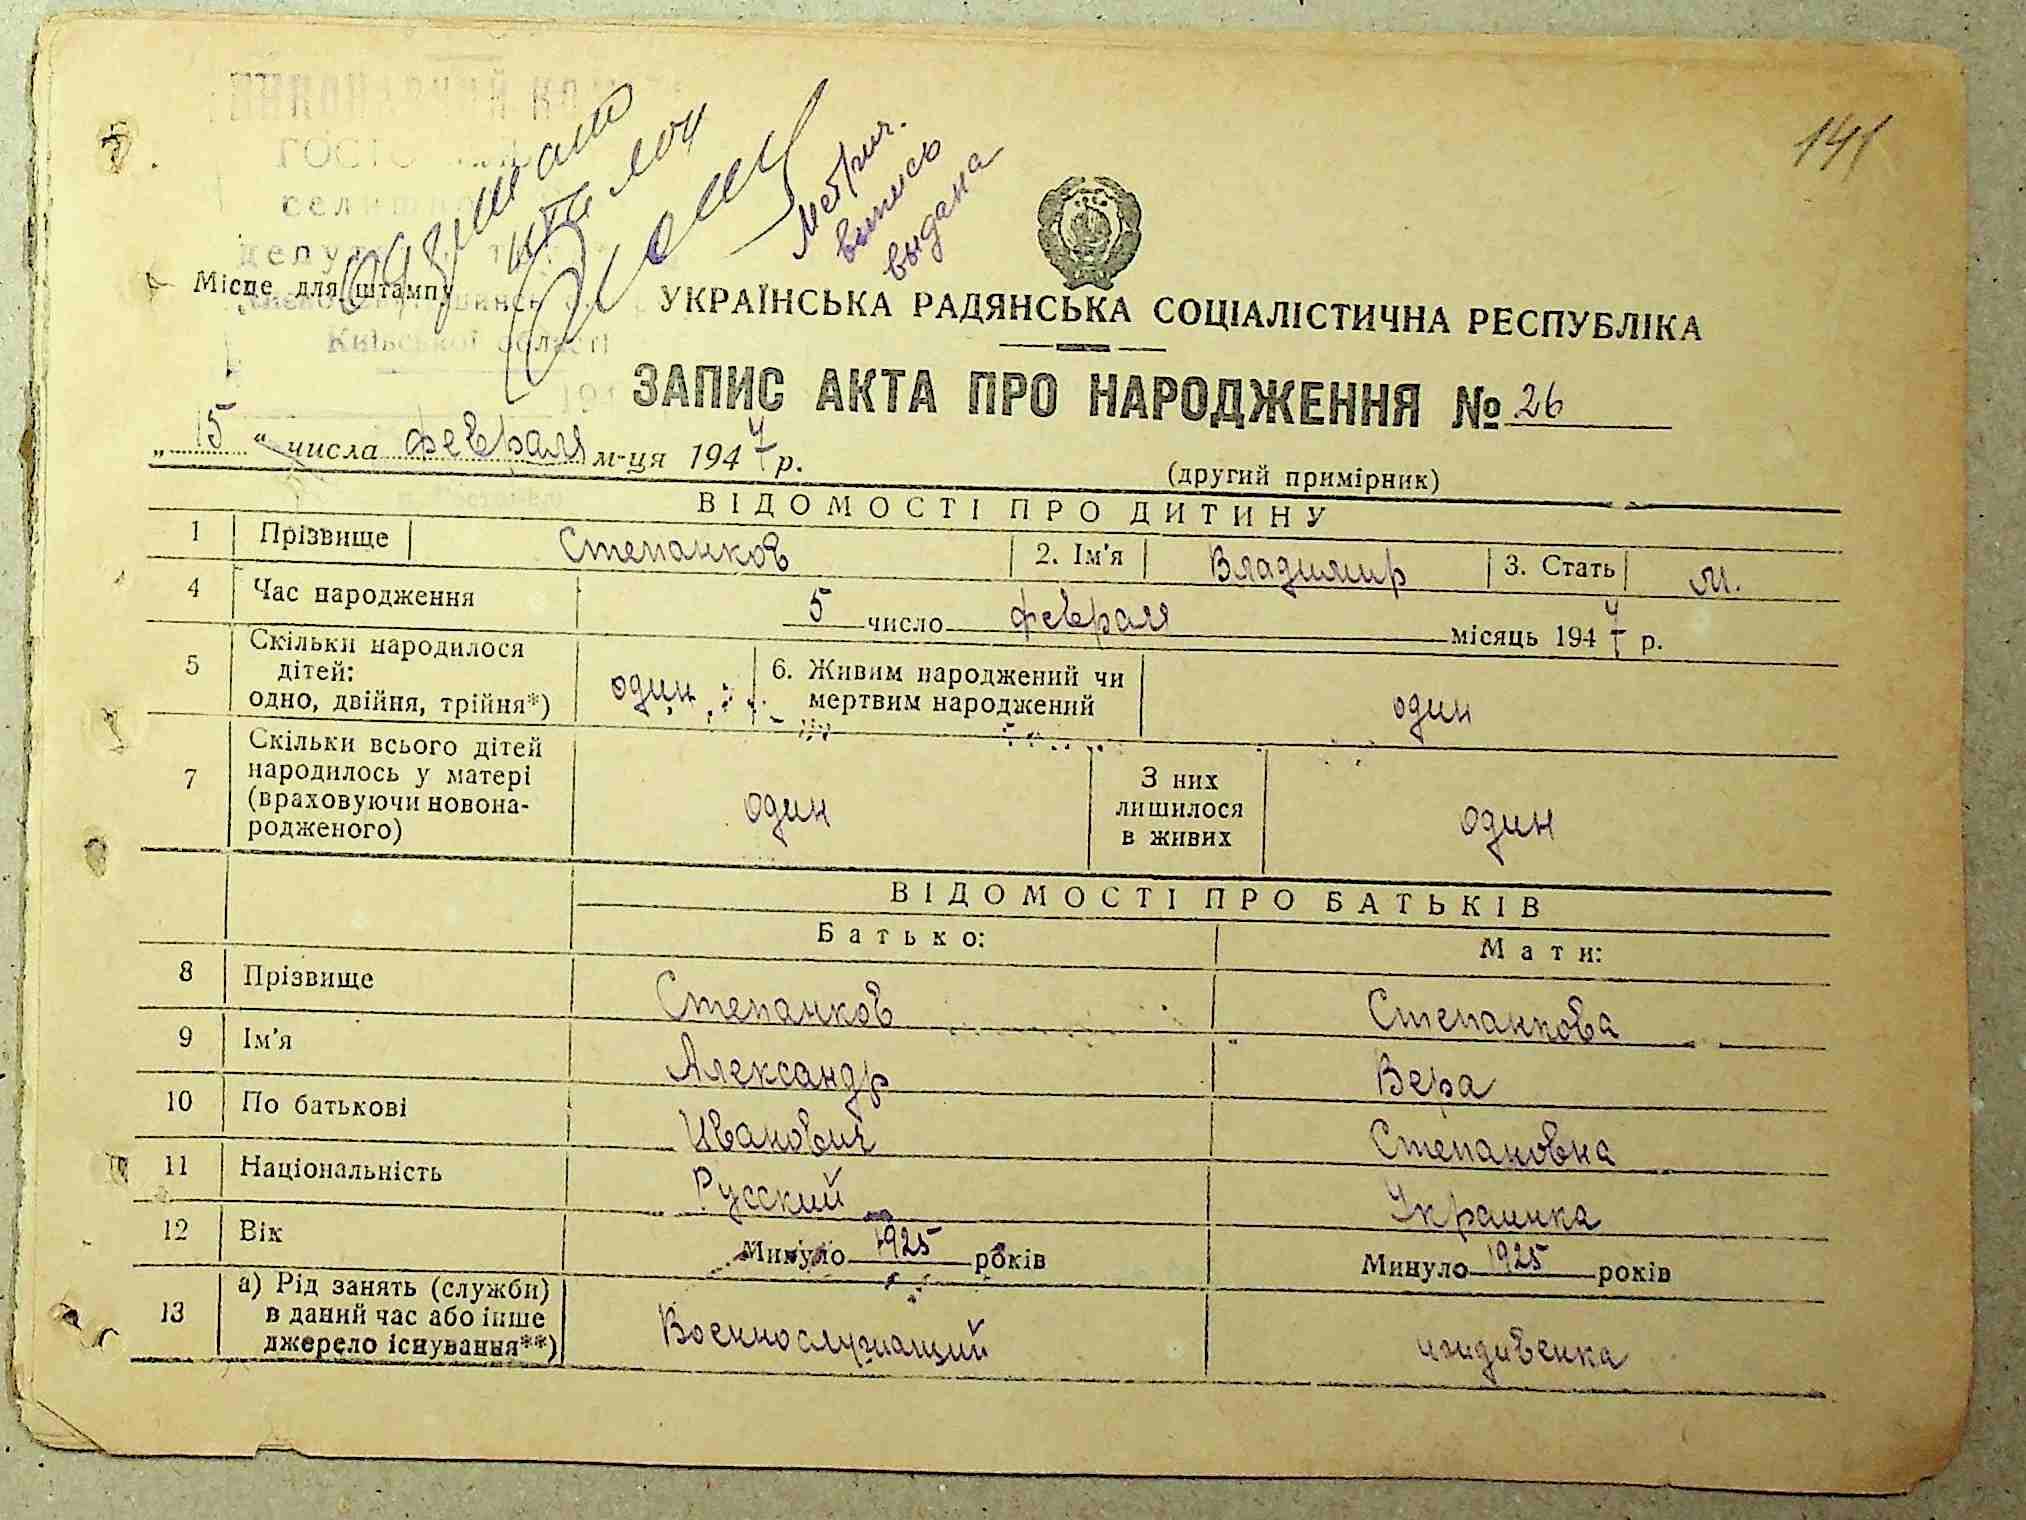 141
Метрич.
выпись
выдана
Місце для штампу
Київської області
УКРАЇНСЬКА РАДЯНСЬКА СОЦІАЛІСТИЧНА РЕСПУБЛІКА
ЗАПИС АКТА ПРО НАРОДЖЕННЯ № 26
„ 15 “ числа февраля м-ця 1947 р.
(другий примірник)
ВІДОМОСТІ ПРО ДИТИНУ
1 Прізвище Степанков 2. Ім'я Владимир 3. Стать М.
4 Час народження 5 число февраля місяць 1947 р.
5 Скільки народилося
дітей:
одно, двійня, трійня*) один 6. Живим народжений чи
мертвим народжений один
7 Скільки всього дітей
народилось у матері
(враховуючи новона-
родженого) один З них
лишилося
в живих один
ВІДОМОСТІ ПРО БАТЬКІВ
Батько: Мати:
8 Прізвище Степанков Степанкова
9 Ім'я Александр Вера
10 По батькові Иванович Степановна
11 Національність Русский Украинка
12 Вік Минуло 1925 років Минуло 1925 років
13 а) Рід занять (служби)
в даний час або інше
джерело існування**) Военнослужащий иждивенка